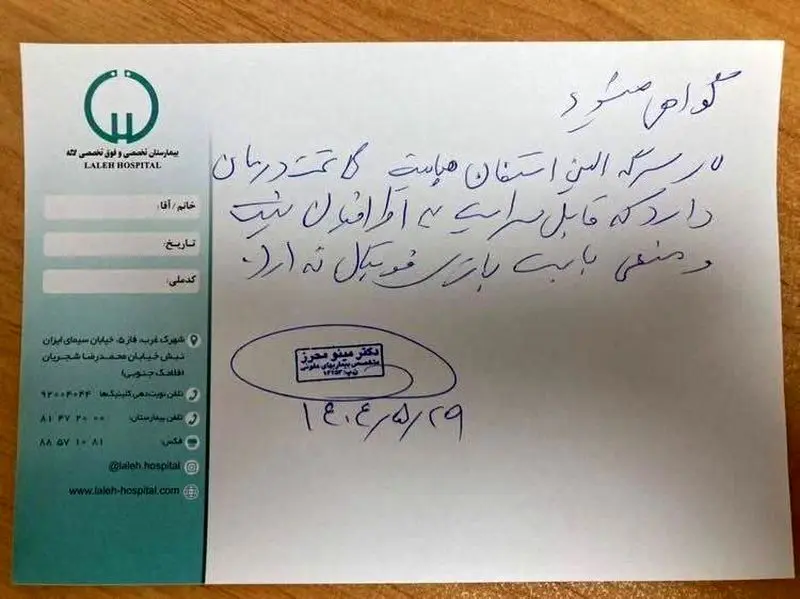 بیمارستان تخصصی و فوق تخصصی لاله
LALEH HOSPITAL
خانم / آقا:
تاریخ:
کدملی:
شهرک غرب، فاز ۵، خیابان سیمای ایران
نبش خیابان محمدرضا شجریان
(فلامک جنوبی)
تلفن نوبت‌دهی کلینیک‌ها: ۹۲۰۰۴۰۴۴
تلفن بیمارستان: ۸۱ ۴۷ ۲۰ ۰۰
فکس: ۸۸ ۵۷ ۱۰ ۸۱
@laleh.hospital
www.laleh-hospital.com
گواهی میشود
سرگه الین استفان هپاتیت تحت درمان
دارد که قابل سرایت به اطرافیان نیست
و منعی بابت بازی فوتبال ندارد.
دکتر مینو محرز
متخصص بیماریهای عفونی
۱۴۰۴/۵/۲۹